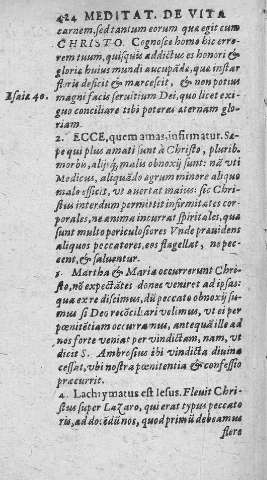 424 MEDITAT. DE VITA
carnem, sed tantum eorum quæ egit cum
CHRISTO. Cognosce homo hic erro-
rem tuum, quisquis addictus es honori &
gloriæ huius mundi aucupãdæ, quæ instar
floris deficit & marcescit, & non potius
Isaiæ 40. magni facis seruitium Dei, quo licet exi-
guo conciliare tibi poteras æternam glo-
riam.
2. ECCE, quem amas, infirmatur. Sæ-
pe qui plus amati sunt à Christo, plurib.
morbis, alijsq́ malis obnoxij sunt: nã vti
Medicus, aliquãdo ægrum minore aliquo
malo efficit, vt auertat maius: sic Chri-
stus interdum permittit infirmitates cor-
porales, ne anima incurrat spiritales, quæ
sunt multo periculosiores Vnde prauident
aliquos peccatores, eos flagellat, ne pec-
cent, & saluentur.
3. Martha & Maria occurrerunt Chri-
sto, nõ expectãtes donec veniret ad ipsas:
qua ex re discimus, dũ peccato obnoxij su-
mus si Deo recõciliari velimus, vt ei per
pœnitẽtiam occurramus, antequã ille ad
nos forte veniat per vindictam, nam, vt
dicit S. Ambrosius ibi vindicta diuina
cessat, vbi nostra pœnitentia & confessio
præcurrit.
4. Lachrymatus est Iesus. Fleuit Chri-
stus super Lazaro, qui erat typus peccato
ris, ad docẽdũ nos, quod primũ debeamus
flere